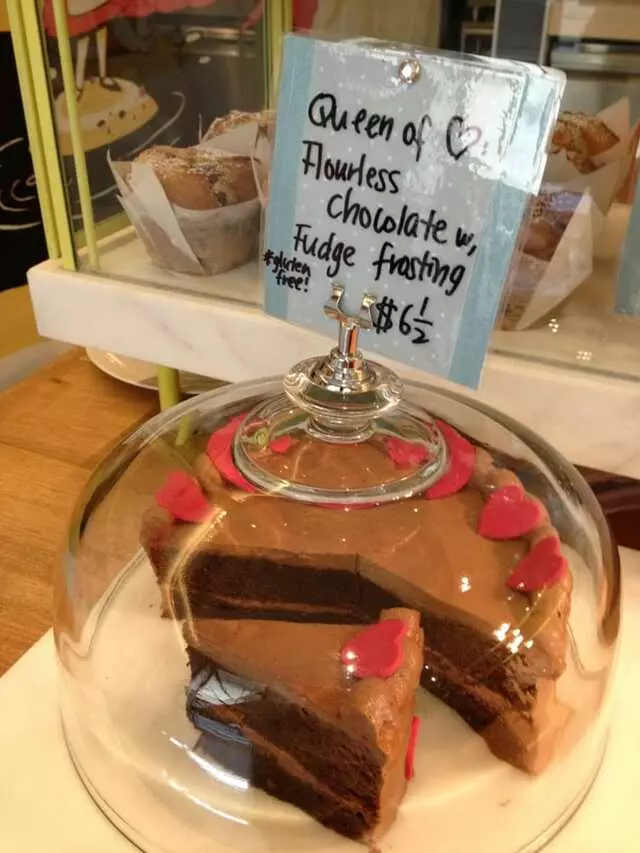 Queen of ♡
Flourless
Chocolate w,
Fudge frosting
*gluten
free!
$6½